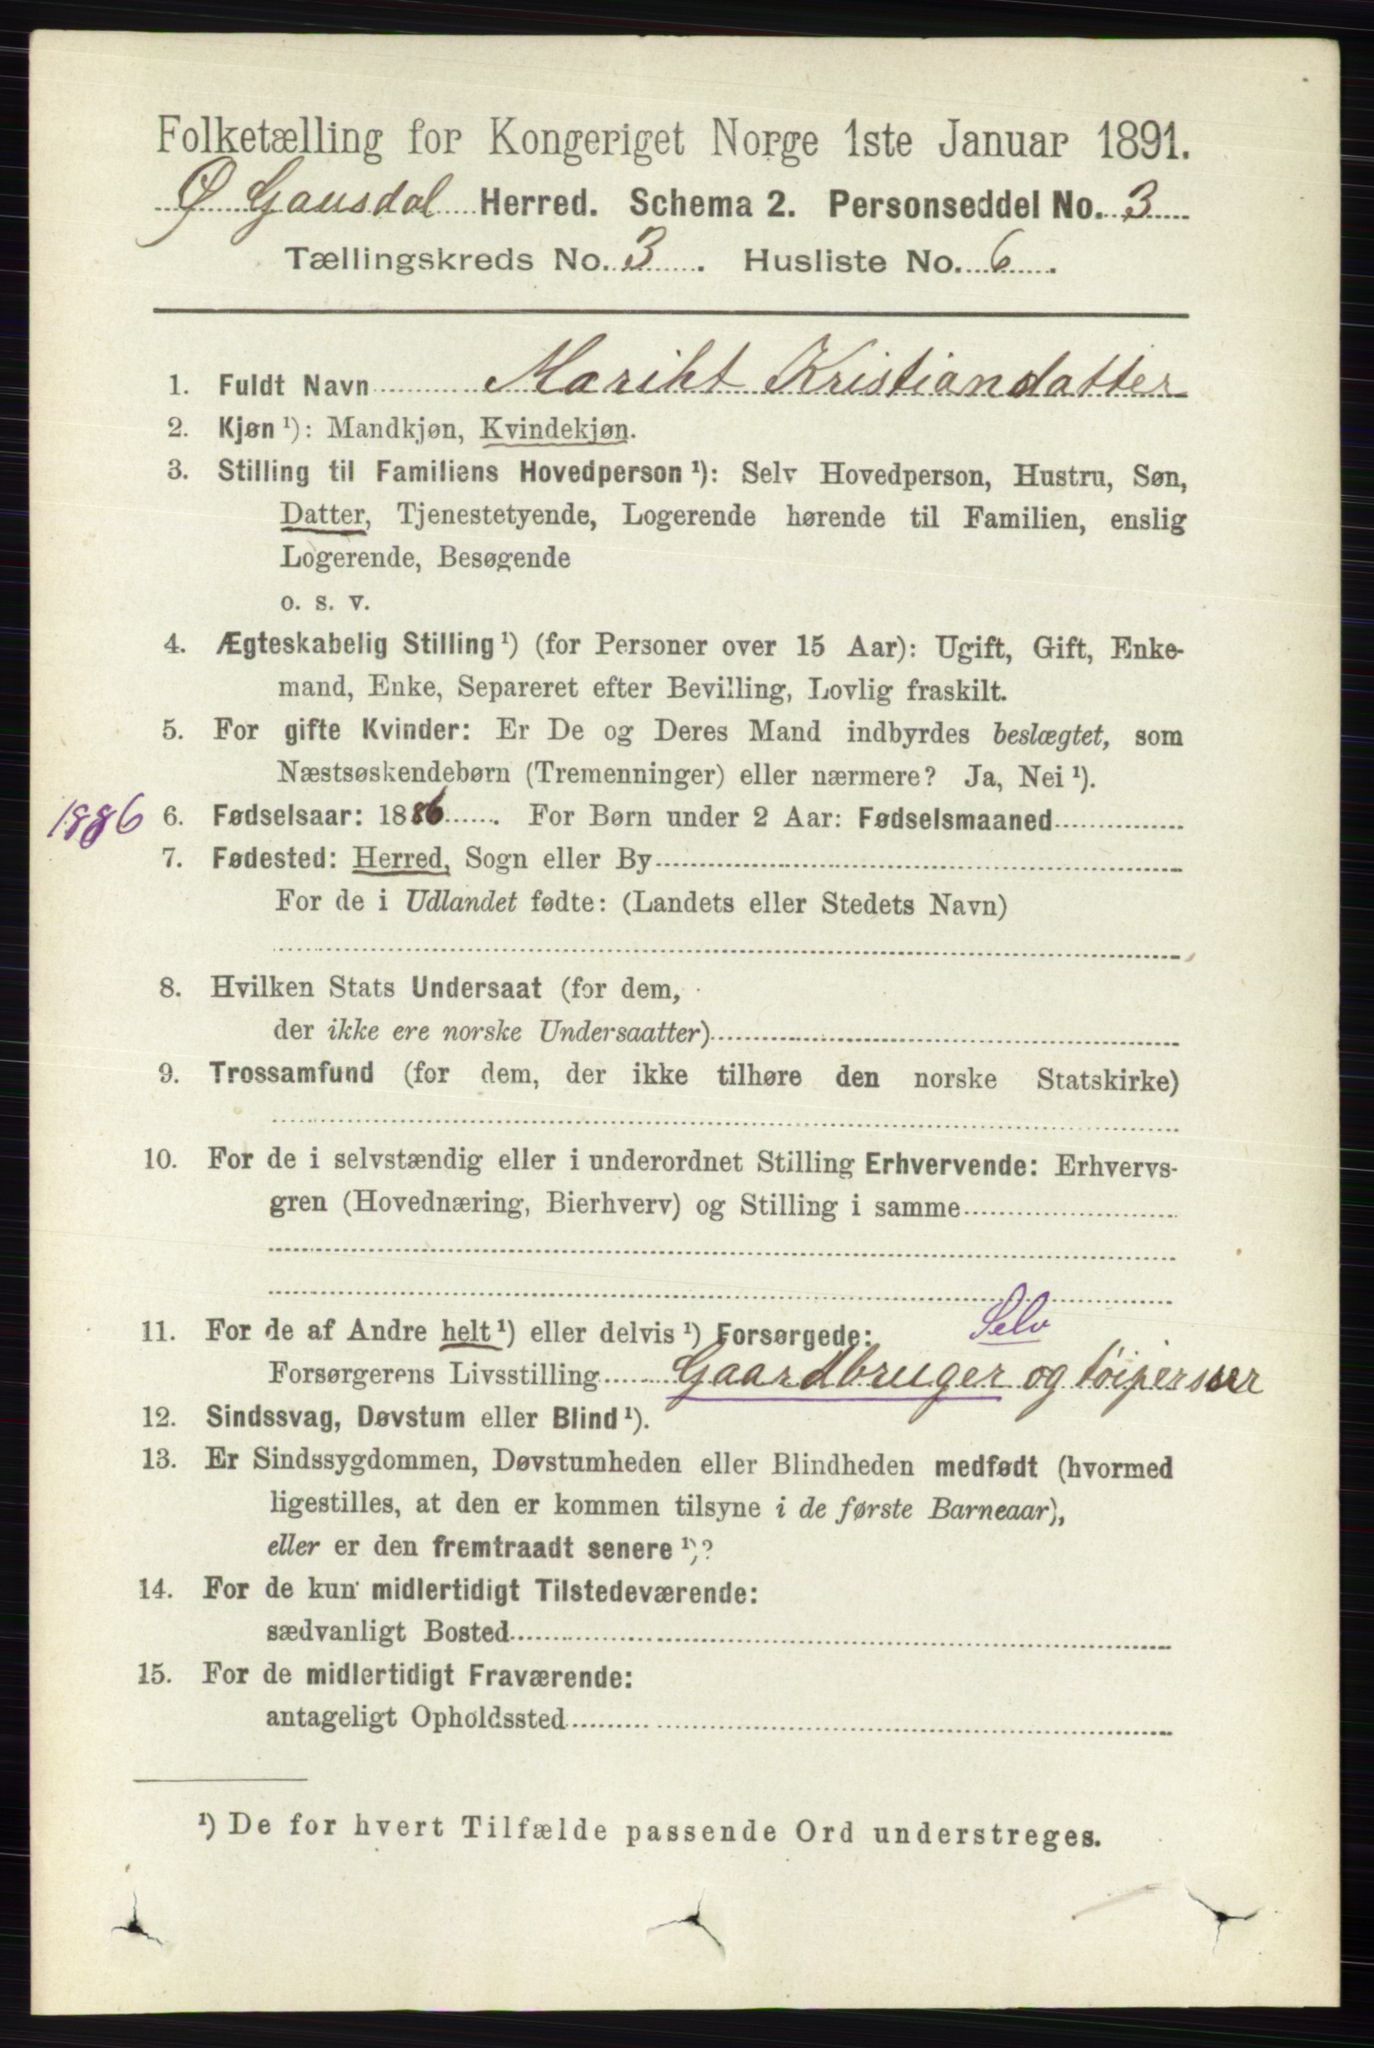 Folketælling for Kongeriget Norge 1ste Januar 1891.
Ø Gausdal Herred. Schema 2. Personseddel No. 3
Tællingskreds No. 3. Husliste No. 6.
1. Fuldt Navn Mariht Kristiansdatter
2. Kjøn ¹): Mandkjøn, Kvindekjøn.
3. Stilling til Familiens Hovedperson ¹): Selv Hovedperson, Hustru, Søn,
Datter, Tjenestetyende, Logerende hørende til Familien, enslig
Logerende, Besøgende
o. s. v.
4. Ægteskabelig Stilling ¹) (for Personer over 15 Aar): Ugift, Gift, Enke-
mand, Enke, Separeret efter Bevilling, Lovlig fraskilt.
5. For gifte Kvinder: Er De og Deres Mand indbyrdes beslægtet, som
Næstsøskendebørn (Tremenninger) eller nærmere? Ja, Nei ¹).
1886 6. Fødselsaar: 1886. For Børn under 2 Aar: Fødselsmaaned
7. Fødested: Herred, Sogn eller By
For de i Udlandet fødte: (Landets eller Stedets Navn)
8. Hvilken Stats Undersaat (for dem,
der ikke ere norske Undersaatter)
9. Trossamfund (for dem, der ikke tilhøre den norske Statskirke)
10. For de i selvstændig eller i underordnet Stilling Erhvervende: Erhvervs-
gren (Hovednæring, Bierhverv) og Stilling i samme
11. For de af Andre helt ¹) eller delvis ¹) Forsørgede: Selv
Forsørgerens Livsstilling Gaardbruger og
12. Sindssvag, Døvstum eller Blind ¹).
13. Er Sindssygdommen, Døvstumheden eller Blindheden medfødt (hvormed
ligestilles, at den er kommen tilsyne i de første Barneaar),
eller er den fremtraadt senere ¹)?
14. For de kun midlertidigt Tilstedeværende:
sædvanligt Bosted
15. For de midlertidigt Fraværende:
antageligt Opholdssted
¹) De for hvert Tilfælde passende Ord understreges.